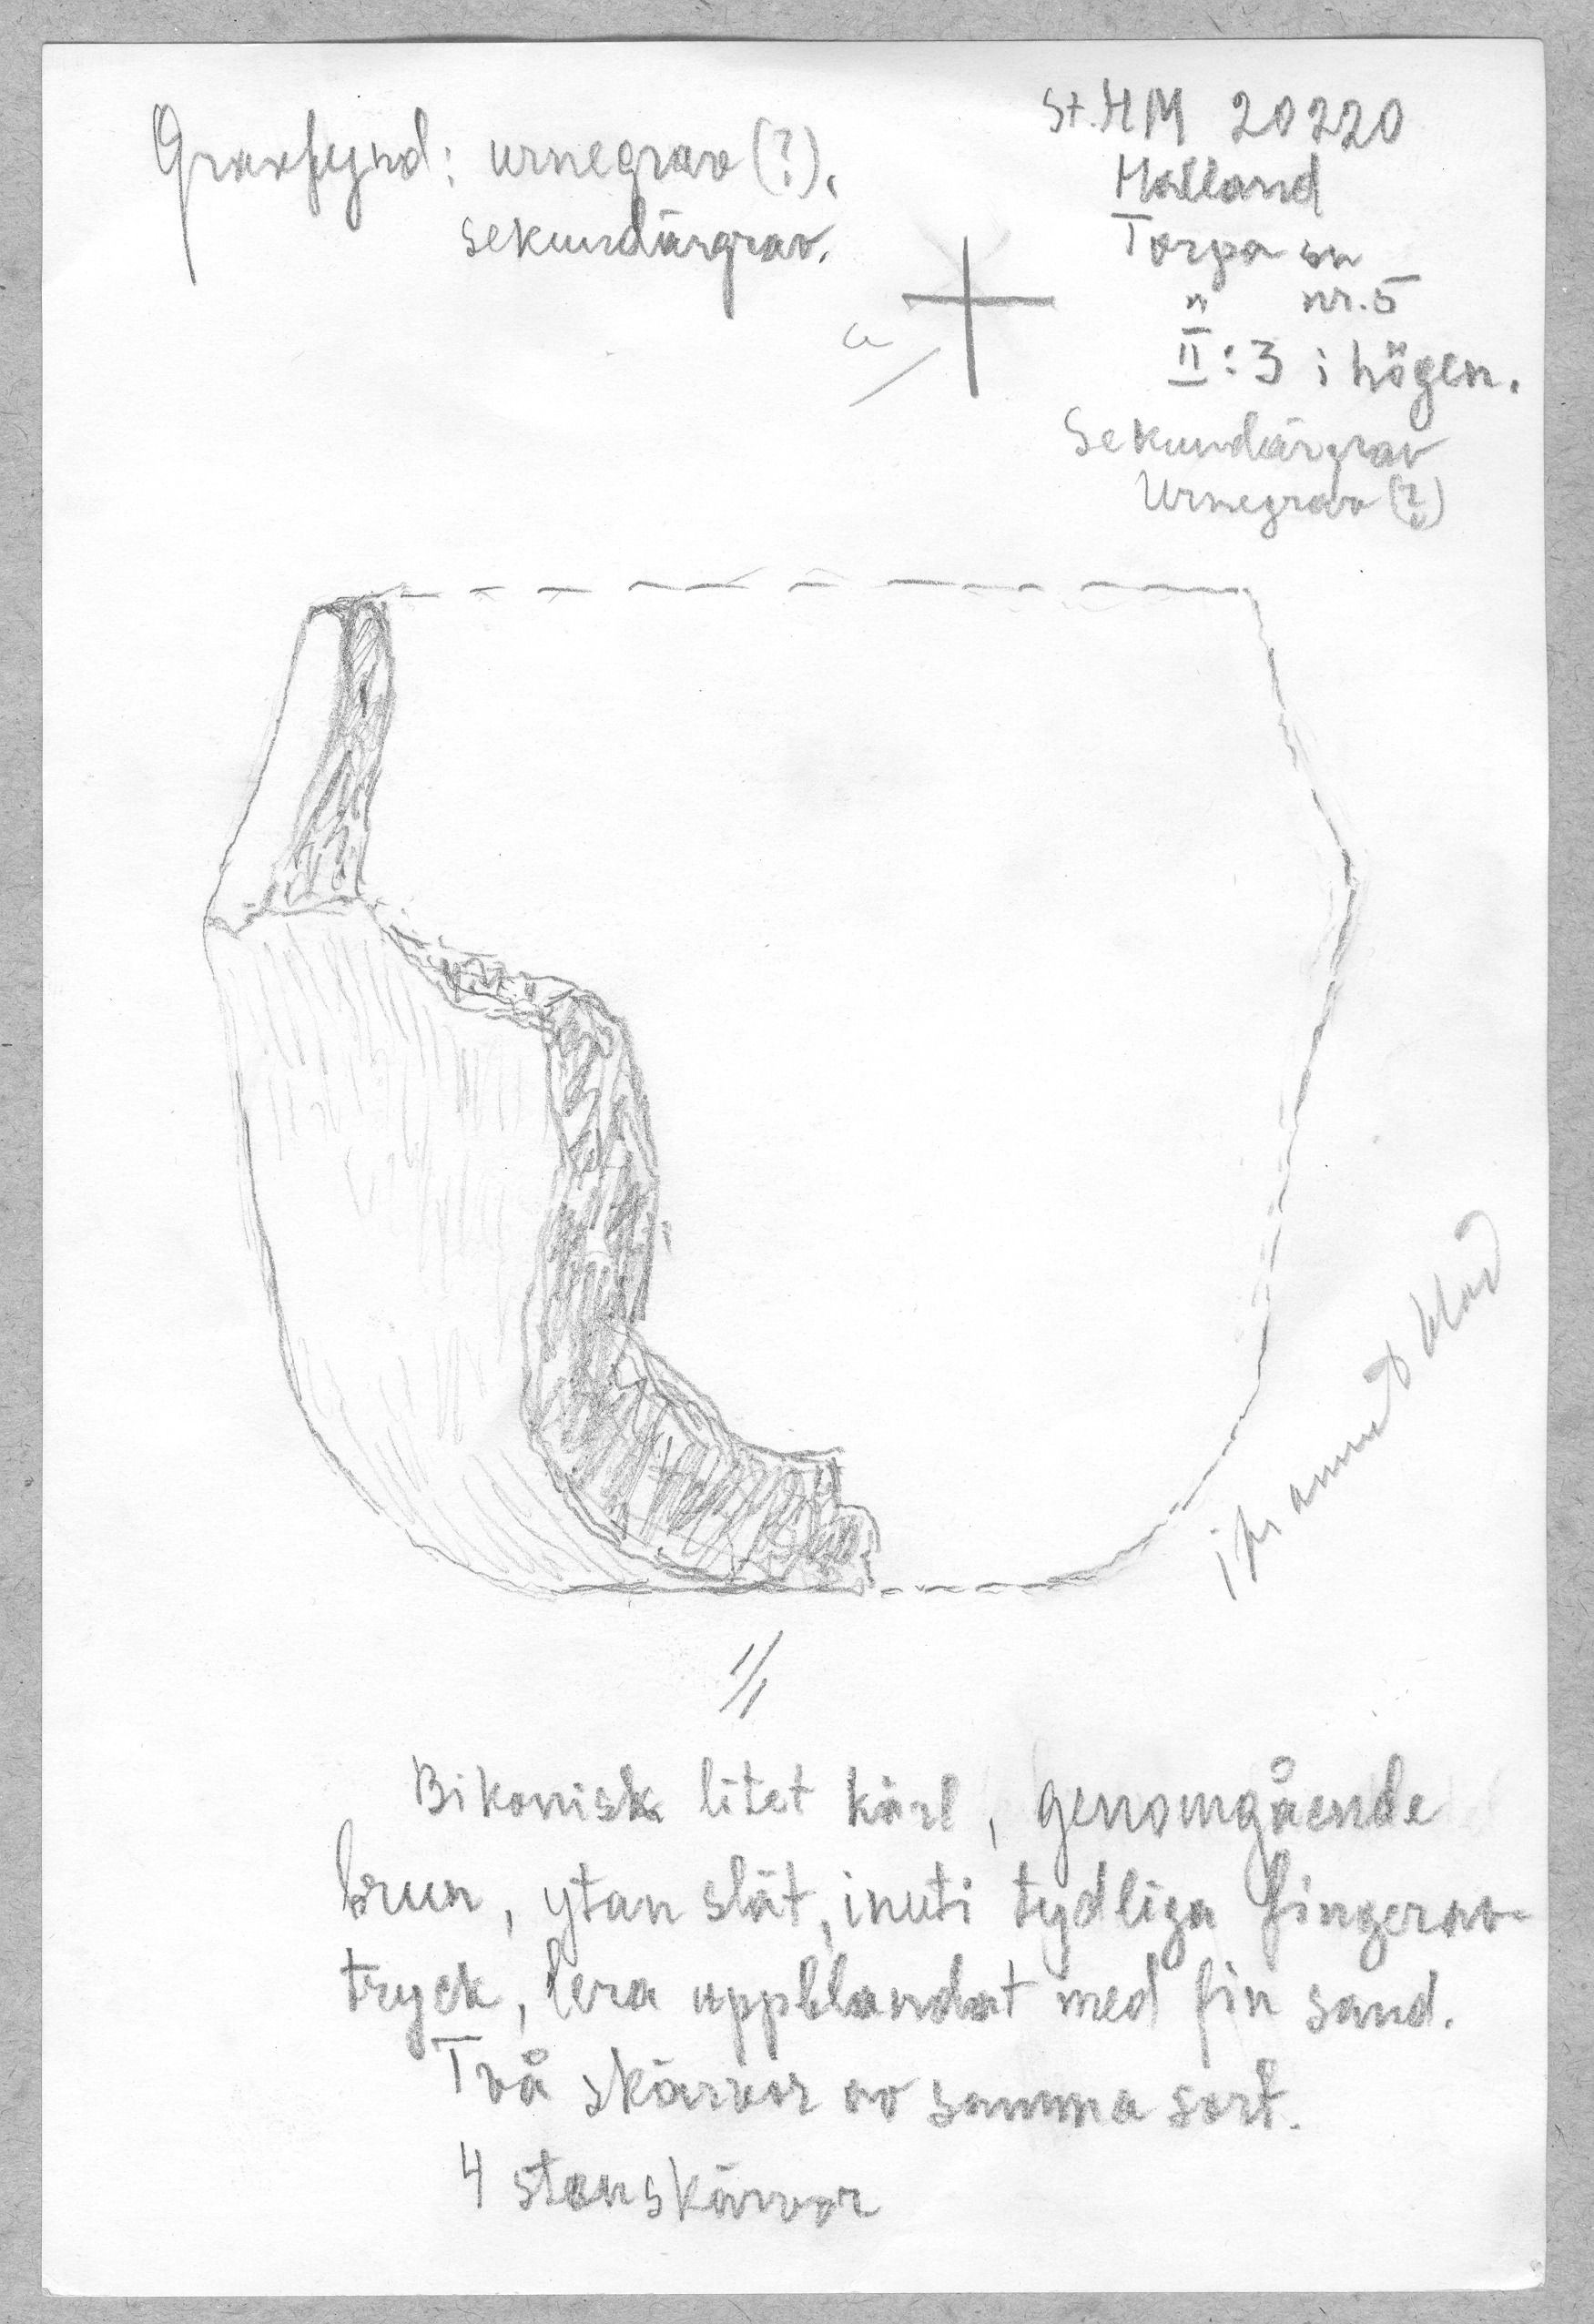 Gravfynd: urnegrav (?).
sekundärgrav.
St. HM 20220
Halland
Torpa sn
" nr. 5
II:3 i högen.
a
Sekundärgrav
Urnegrav (?)
1/1
annat blad
Bikonisk litet kärl, genomgående
brun, ytan slät, inuti tydliga fingerav-
tryck, lera uppblandat med fin sand.
Två skärvor av samma sort.
4 stenskärvor